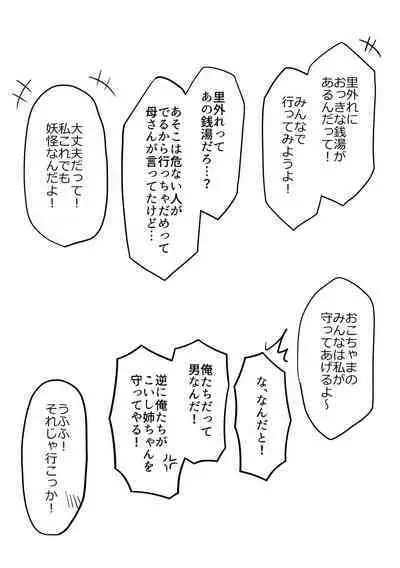 里外れに
おっきな銭湯が
あるんだって！
みんなで
行ってみようよ！
里外れって
あの銭湯だろ…？
あそこは危ない人が
でるから行っちゃだめって
母さんが言ってたけど…
大丈夫だって！
私これでも
妖怪なんだよ！
おこちゃまの
みんなは私が
守ってあげるよ～
な、なんだと！
俺たちだって
男なんだ！
逆に俺たちが
こいし姉ちゃんを
守ってやる！
うふふ！
それじゃ行こっか！